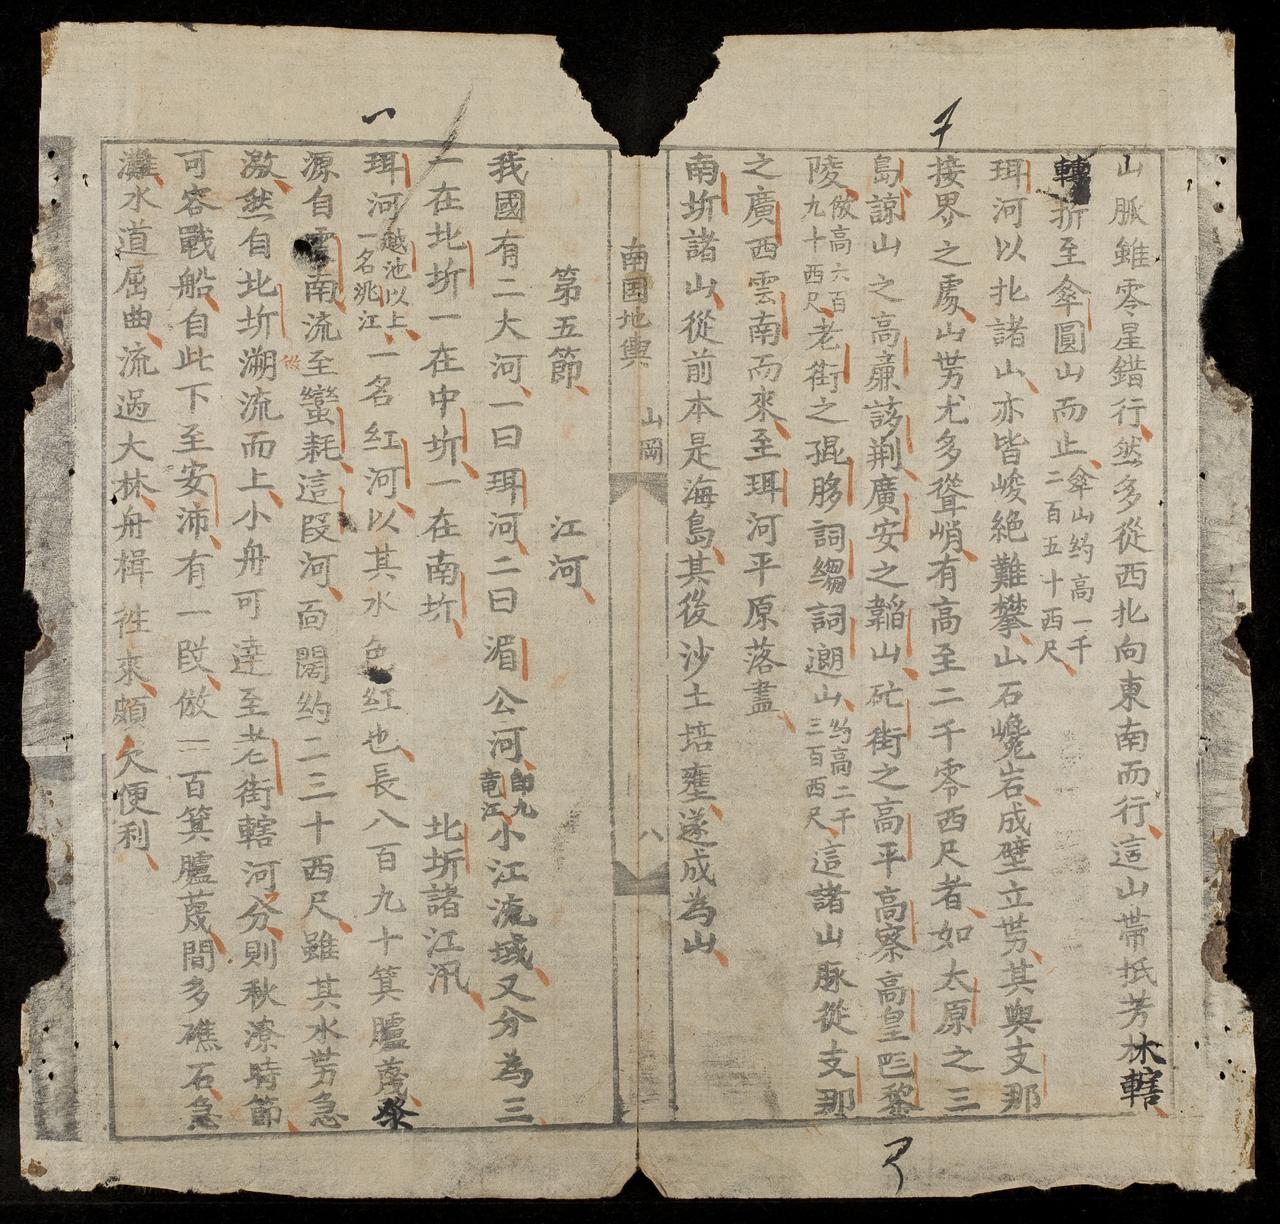 山脈雖零星錯行然多從西北向東南而行這山帶抵芳林轄
轉折至傘圓山而止傘山約高一千二百五十西尺
珥河以北諸山亦皆峻絕難攀山石巉岩成壁立势其與支那
接界之處山势尤多聳峭有高至二千零西尺者如太原之三
島諒山之高薕該荆廣安之韜山硭街之高平高察高皇巴黎
陵倣高六百九十西尺老街之䐊詞縐詞山約高二千三百西尺這諸山脉從支那
之廣西雲南而來至珥河平原落盡
南圻諸山從前本是海島其後沙土培壅遂成為山
南国地輿 山岡 八
第五節 江河
我國有二大河一曰珥河二曰湄公河即九竜江小江流域又分為三
一在北圻一在中圻一在南圻 北圻諸江汛
珥河越池以上一名洮江一名紅河以其水色紅也長八百九十箕臚蔑發
源自雲南流至蠻耗這段河面闊約二三十西尺雖其水势急
激然自北圻溯流而上小舟可達至老街轄河分則秋潦時節
可容戰船自此下至安沛有一段倣一百箕臚蔑間多礁石急
灘水道屈曲流過大林舟楫徃來頗欠便利